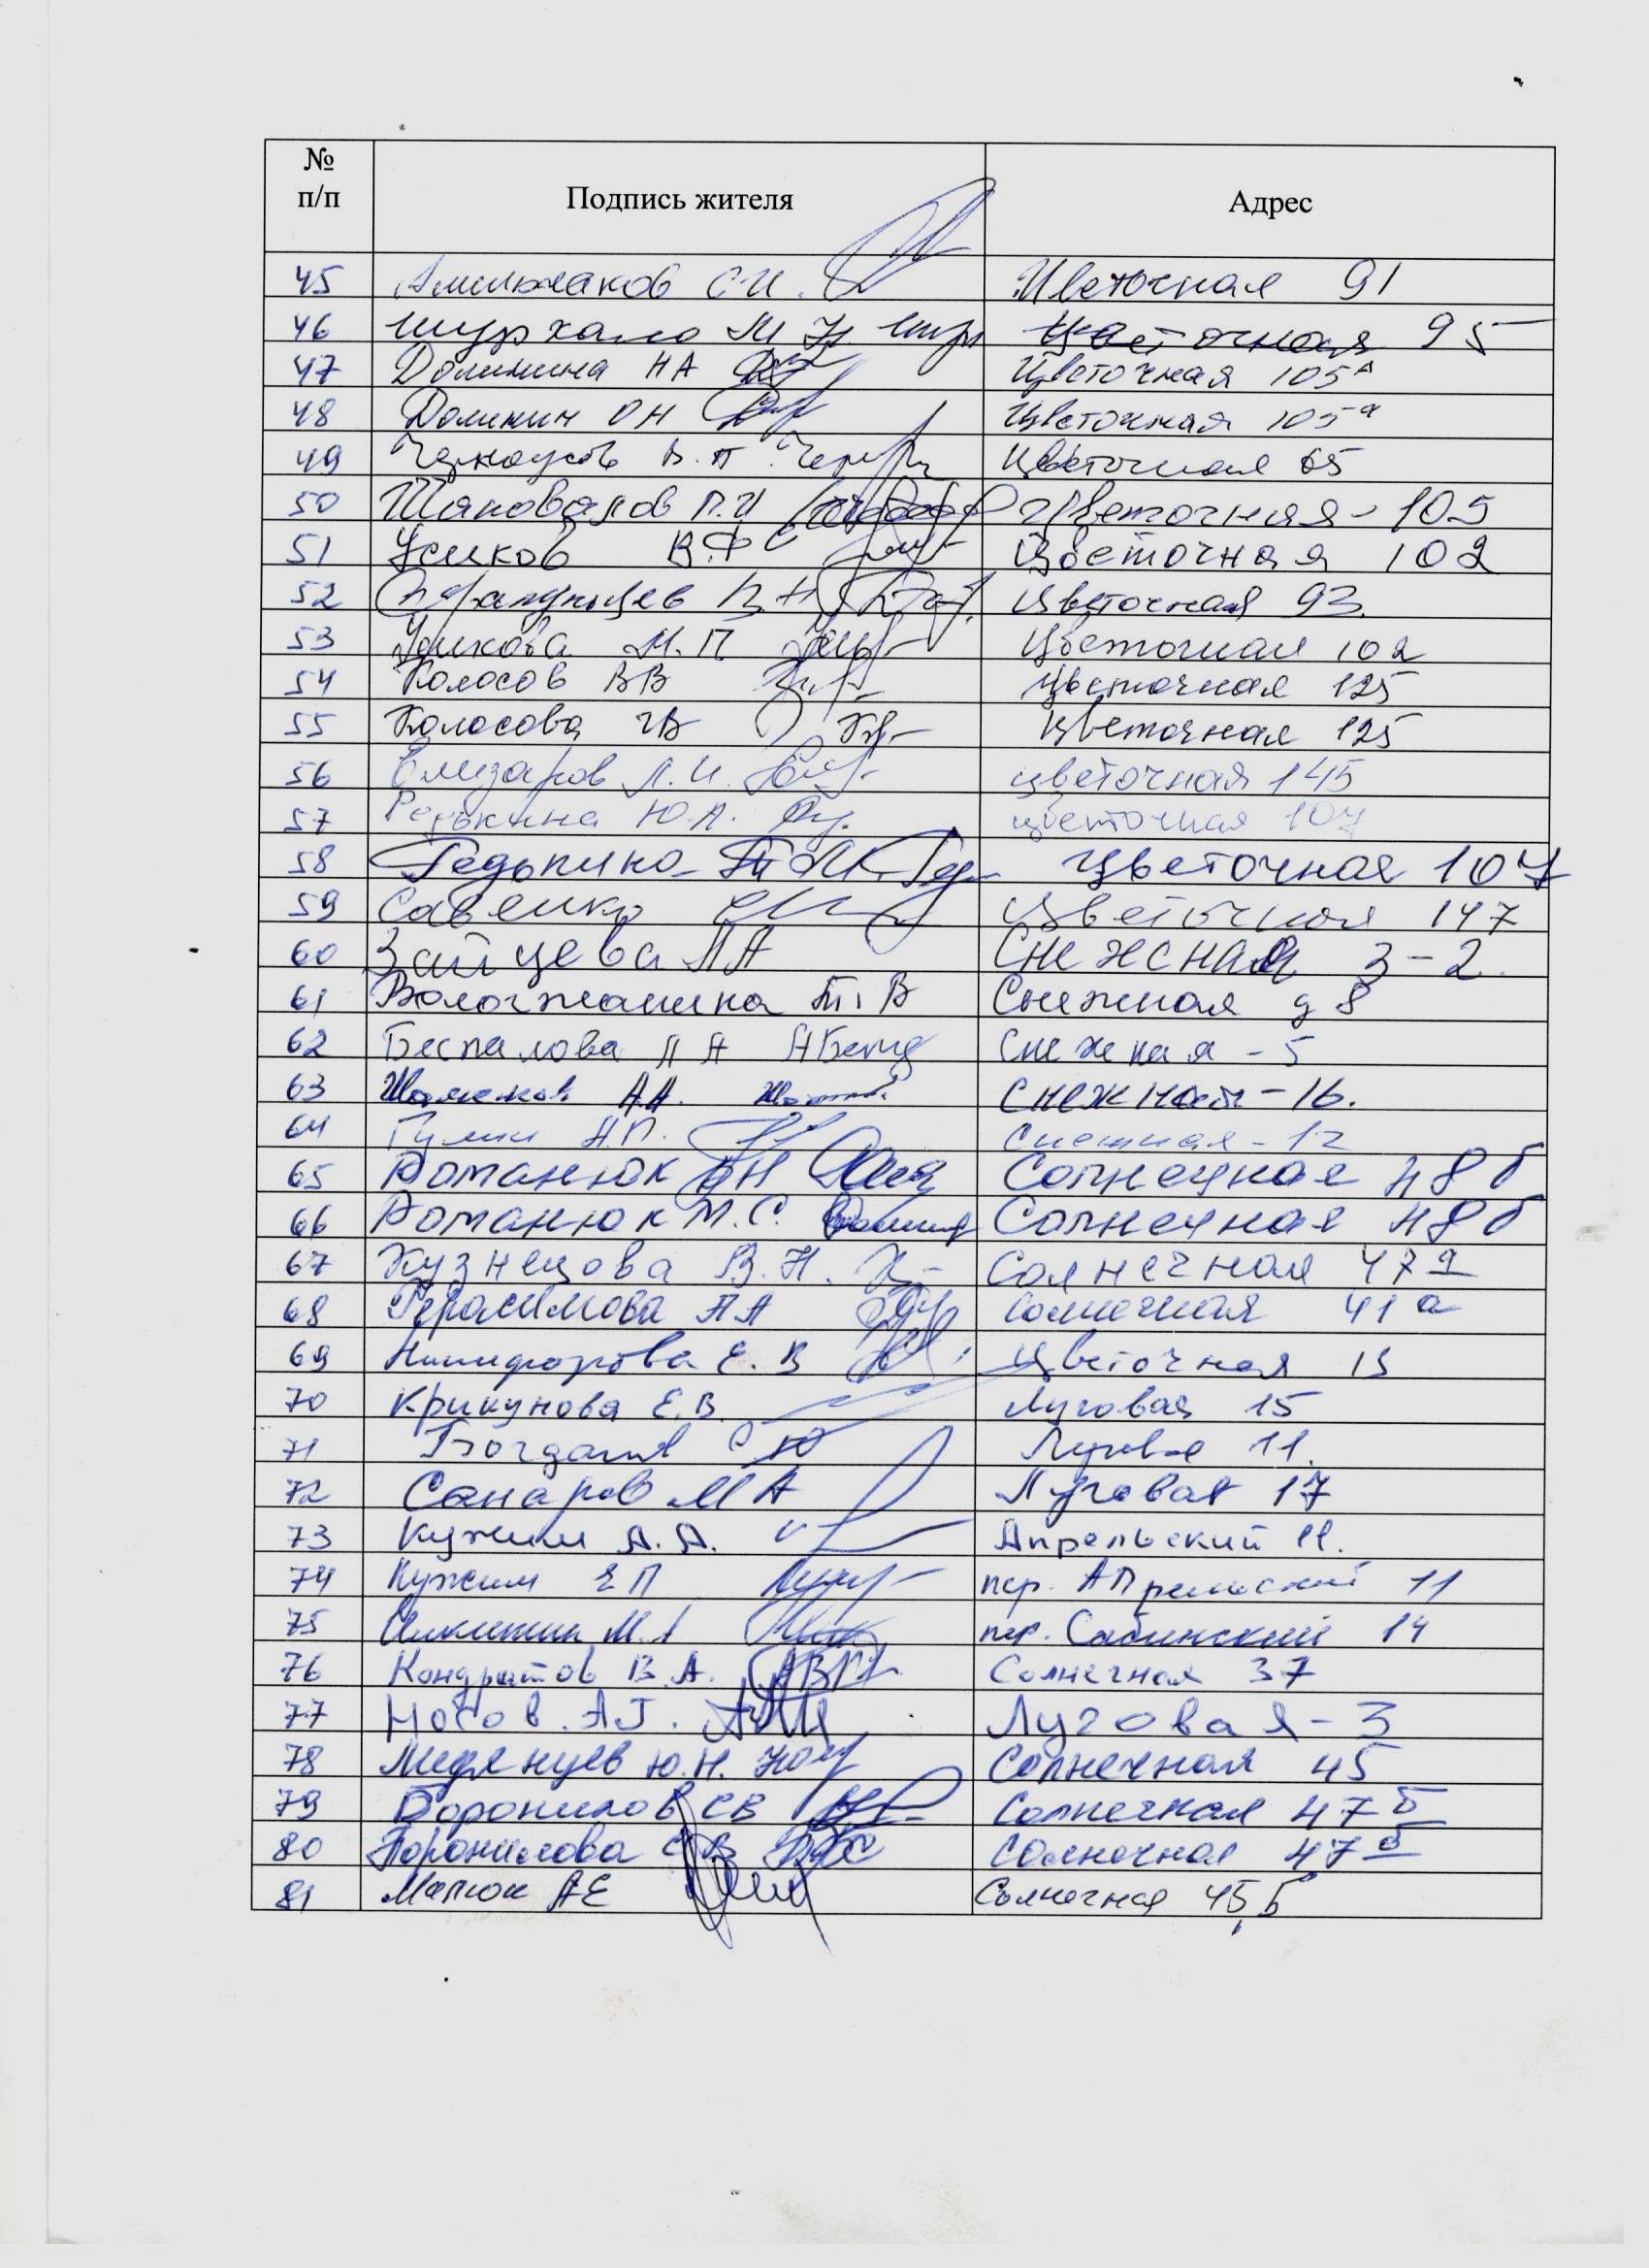 №
п/п
Подпись жителя
Адрес
45 С.И. Цветочная 91
46 Шурхало М Н Цветочная 95
47 Долинина НА Цветочная 105А
48 Долинин ОН Цветочная 105а
49 Черноусов В.П. Цветочная 65
50 Шаповалов П.И Цветочная - 105
51 Усиков В.Ф Цветочная 102
52 В Н Цветочная 93
53 Усикова М.П Цветочная 102
54 Колосов ВВ Цветочная 125
55 Колосова ГВ Цветочная 125
56 Елизаров Л.И. цветочная 145
57 Редькина Ю.А. цветочная 107
58 Редькина Цветочная 107
59 Савенко Цветочная 147
60 Зайцева ЛА Снежная 3-2
61 Вологжанина Т.В Снежная д 8
62 Беспалова Л А Снежная - 5
63 А.А. Снежная - 16.
64 Гулин А.П. Снежная - 12
65 Романюк АН Солнечная 48б
66 Романюк М.С. Солнечная 48б
67 Кузнецова В.Н. Солнечная 47а
68 Герасимова ЛА Солнечная 41а
69 Никифорова Е. В Цветочная 13
70 Крикунова Е.В. Луговая 15
71 Богданов С Ю Луговая 11.
72 Сапаров М А Луговая 17
73 Кужим А.А. Апрельский 11.
74 Кужим ЕП пер. Апрельский 11
75 М.А пер. Сабинский 14
76 Кондратов В.А. Солнечная 37
77 Носов. А.Г. Луговая - 3
78 Медянцев Ю.Н. Солнечная 45
79 Воронилов СВ Солнечная 47Б
80 Воронилова С В Солнечная 47б
81 Матюк АЕ Солнечная 45Б